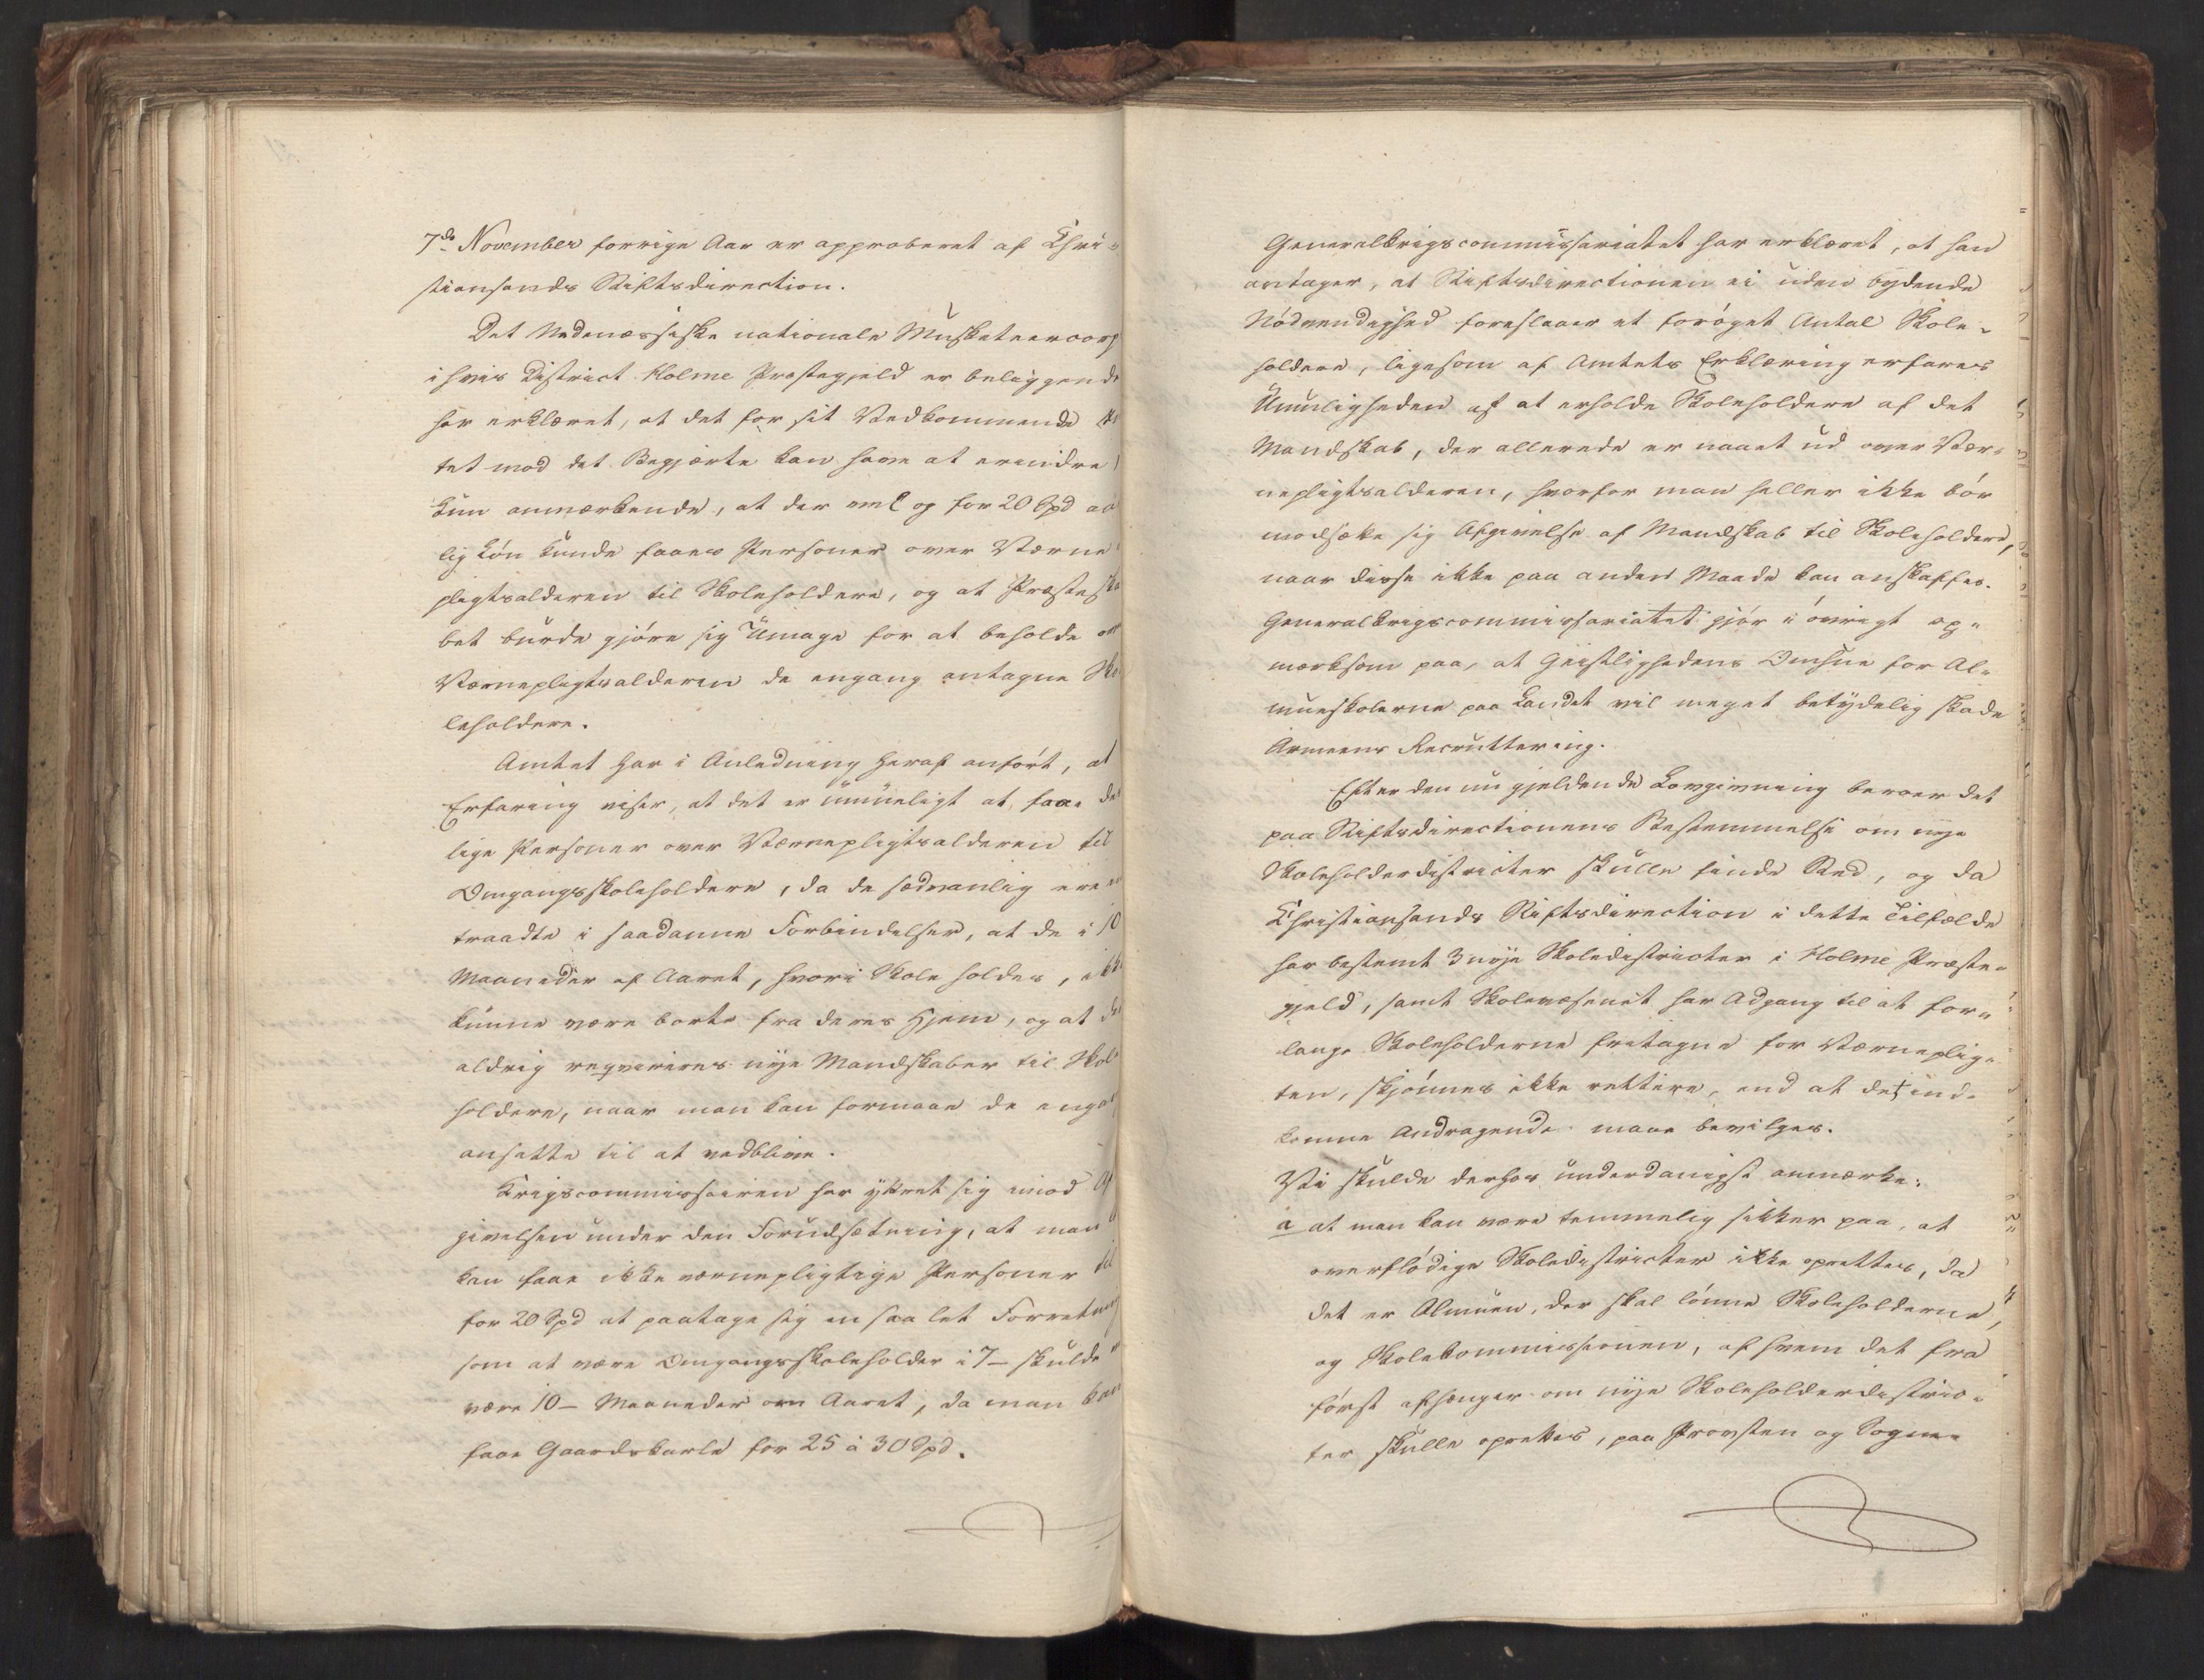 7de November forrige Aar er approberet af Chri-
stiansands Stiftsdirection.
Det Nedenæssiske nationale Musketeercorps
i hvis District Holme Præstegjeld er beliggende
har erklæret, at det for sit Vedkommende In
tet mod det Begjærte kan have at erindre
kun anmærkende, at der vel og for 20 Spd aar
lig Løn kunde faaes Personer over Værne
pligtsalderen til Skoleholdere, og at Præsteska
bet burde gjøre sig Umage for at beholde over
Værnepligtsalderen de engang antagne Sko
leholdere.
Amtet har i Anledning heraf anført, at
Erfaring viser, at det er umueligt at faae due
lige Personer over Værnepligtsalderen til
Omgangsskoleholdere, da de sædvanlig ere
traadte i saadanne Forbindelser, at de i 10
Maaneder af Aaret, hvori Skole holdes, ikke
kunne være borte fra deres Hjem, og at der
aldrig reqvireres nye Mandskaber til Skole
holdere, naar man kan formaae de engang
ansatte til at vedblive.
Krigscommissairen har yttret sig imod Af
givelsen under den Forudsætning, at man
kan faae ikke værnepligtige Personer til
for 20 Spd at paatage sig en saa let Forretning
som at være Omgangsskoleholder i 7 - skulde
være 10 - Maaneder om Aaret, da man kan
faae Gaardskarle for 25 à 30 Spd.
Generalkrigscommissariatet har erklæret, at han
antager, at Stiftsdirectionen ei uden bydende
Nødvendighed foreslaaer et forøget Antal Skole-
holdere, ligesom af Amtets Erklæring erfares
Umuligheden af at erholde Skoleholdere af det
Mandskab, der allerede er naaet ud over Vær-
nepligtsalderen, hvorfor man heller ikke bør
modsætte sig Afgivelse af Mandskab til Skoleholdere,
naar disse ikke paa anden Maade kan anskaffes.
Generalkrigscommissariatet gjør i øvrigt op-
mærksom paa, at Geistlighedens Omhue for Al-
mueskolerne paa Landet vil meget betydelig skade
Armeens Recruttering.
Efter den nu gjeldende Lovgivning beroer det
paa Stiftsdirectionens Bestemmelse om nye
Skoleholderdistricter skulle finde Sted, og da
Christiansands Stiftsdirection i dette Tilfælde
har bestemt 3 nye Skoledistricter i Holme Præste-
gjeld, samt Skolevæsenet har Adgang til at for-
lange Skoleholderne fritagne for Værneplig-
ten, skjønnes ikke rettere, end at det ind-
komne Andragende maae bevilges.
Vi skulde derhos underdanigst anmærke:
a at man kan være temmelig sikker paa, at
overflødige Skoledistricter ikke oprettes, da
det er Almuen, der skal lønne Skoleholderne,
og Skolekommissionen, af hvem det fra
først afhænger om nye Skoleholderdistric-
ter skulle oprettes, paa Provsten og Sogne-